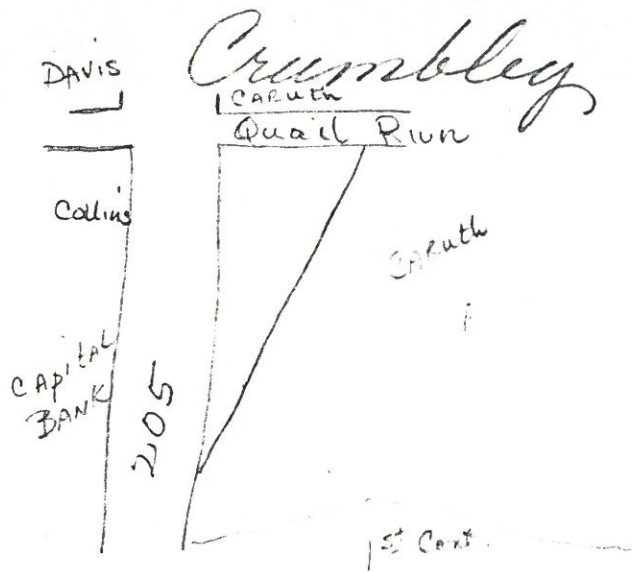 Crumbley
DAVIS
CARUTH
Quail Run
Collins
CARUth
CApitAL
BANK
205
1st Cont.